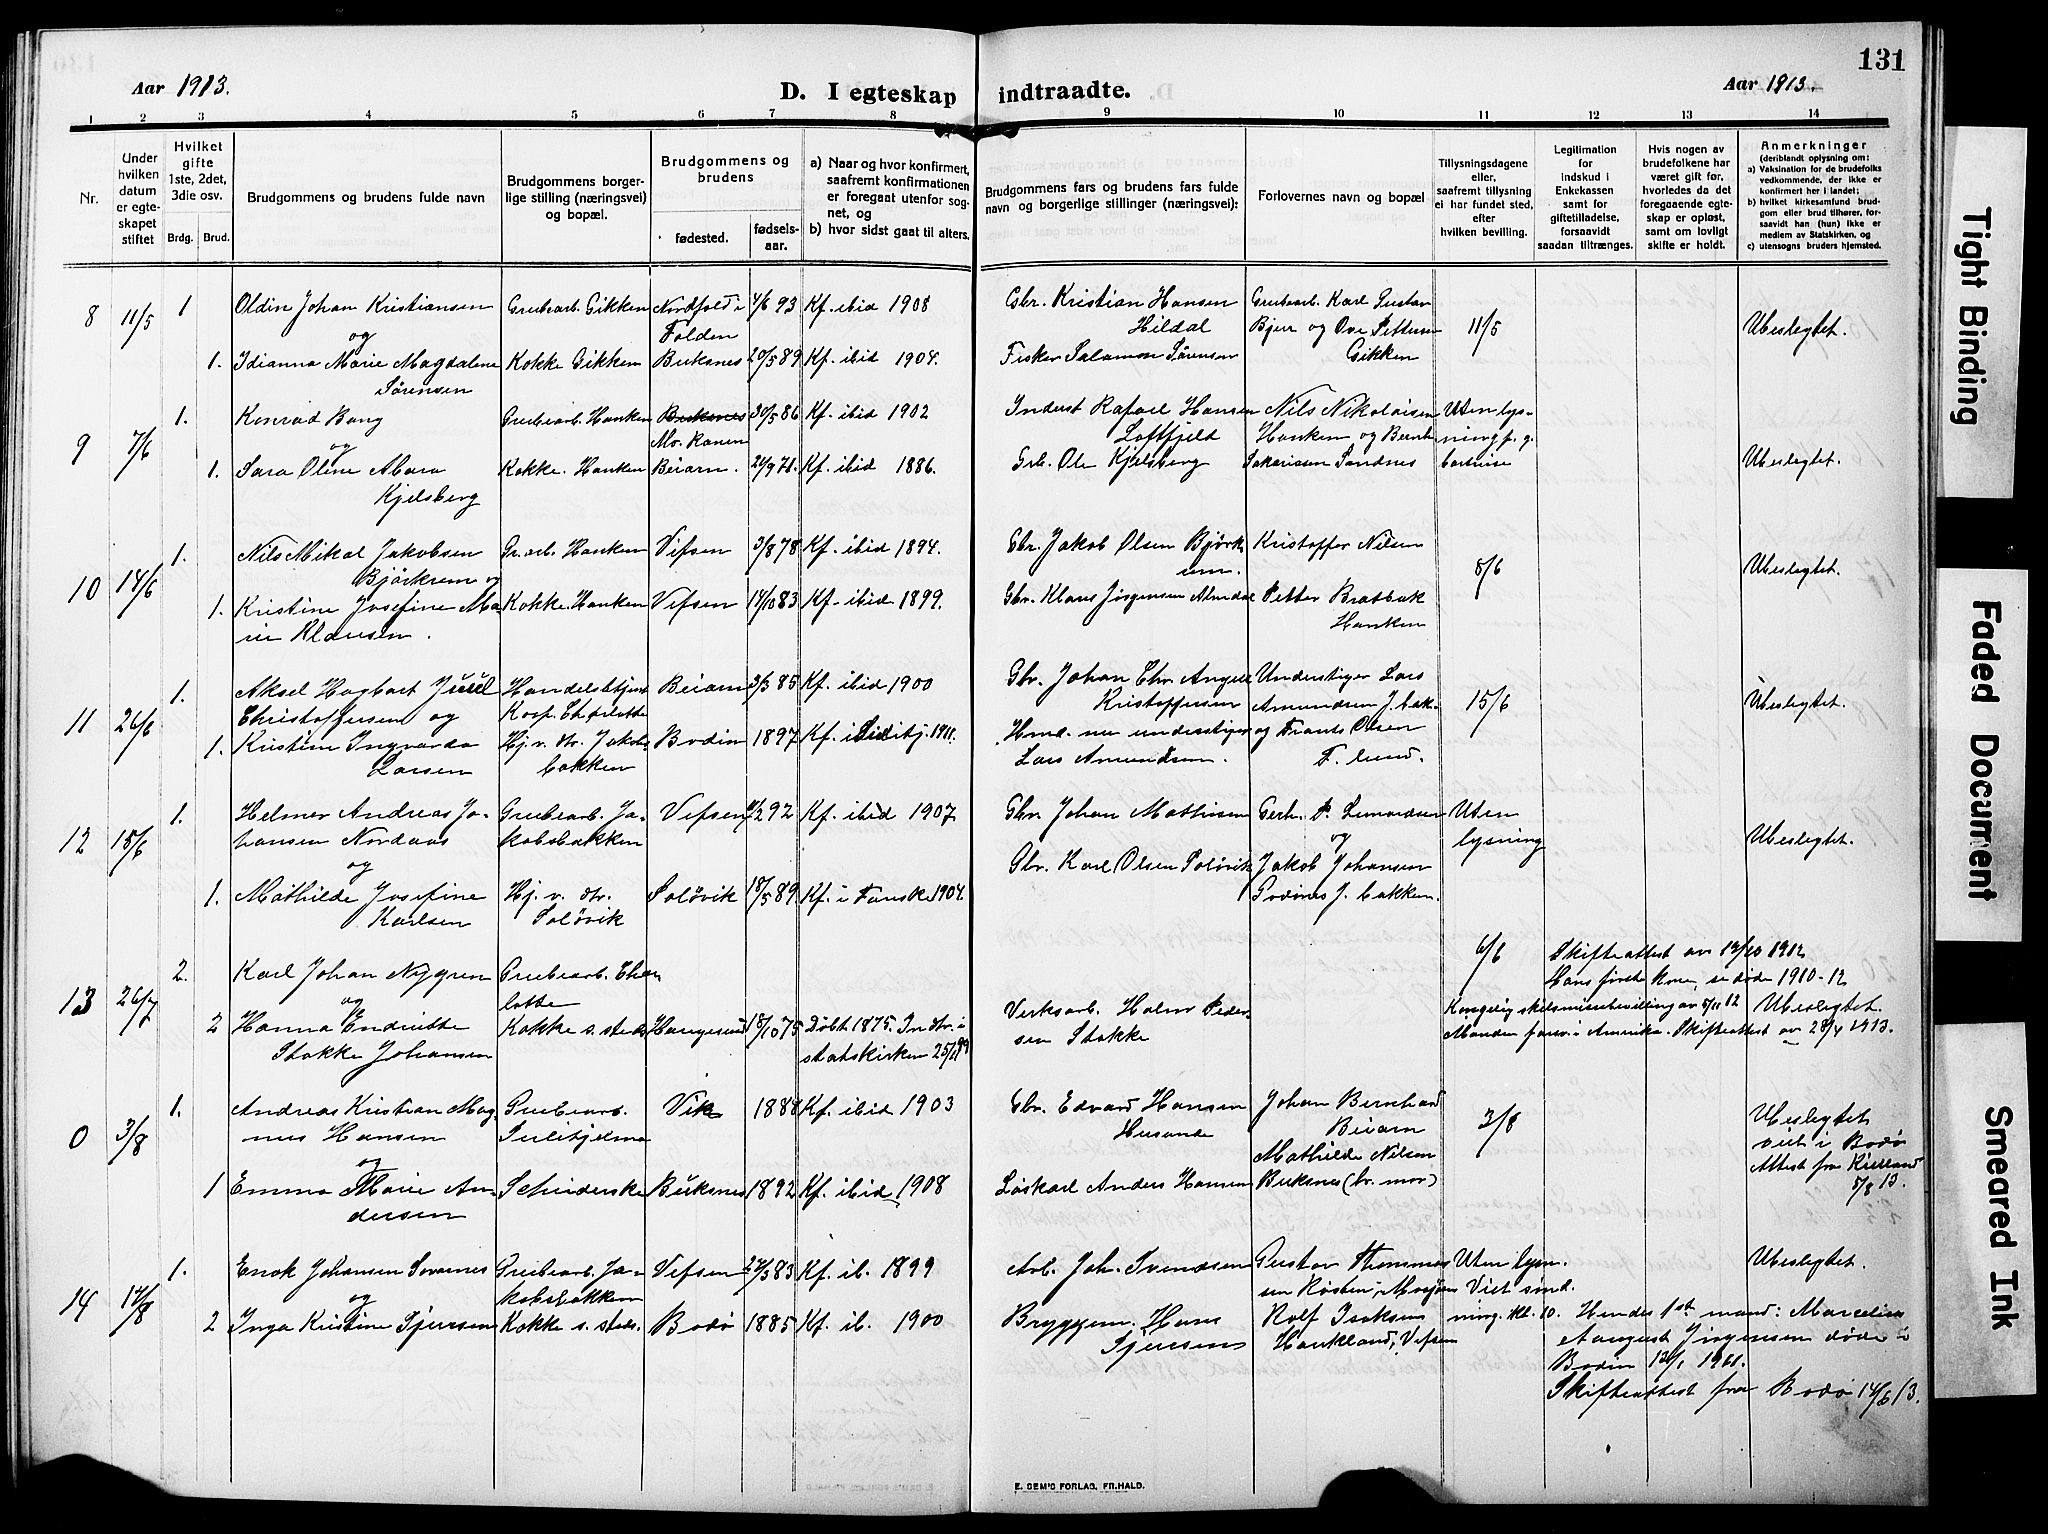 131
Aar 1913.
D. I egteskap indtraadte.
Aar 1913.
1 2 3 4 5 6 7 8 9 10 11 12 13 14
Nr.
Under hvilken datum er egteskapet stiftet
Hvilket gifte 1ste, 2det, 3die osv.
Brdg. Brud.
Brudgommens og brudens fulde navn
Brudgommens borgerlige stilling (næringsvei) og bopæl.
Brudgommens og brudens
fødested.
fødselsaar.
a) Naar og hvor konfirmert, saafremt konfirmationen er foregaat utenfor sognet, og
b) hvor sidst gaat til alters.
Brudgommens fars og brudens fars fulde navn og borgerlige stillinger (næringsvei):
Forlovernes navn og bopæl
Tillysningsdagene eller, saafremt tillysning ei har fundet sted, efter hvilken bevilling.
Legitimation for indskud i Enkekassen samt for giftetilladelse, forsaavidt saadan tiltrænges.
Hvis nogen av brudefolkene har været gift før, hvorledes da det foregaaende egteskap er opløst, samt om lovligt skifte er holdt.
Anmerkninger
(deriblandt oplysning om:
a) Vaksination for de brudefolks vedkommende, der ikke er konfirmert her i landet;
b) hvilket kirkesamfund brudgom eller brud tilhører, forsaavidt han (hun) ikke er medlem av Statskirken, og
c) utensogns bruders hjemsted.
8 11/5 1 Oldin Johan Kristiansen Grubearb. Gikken Nordfold i Folden 4/6 93 Kf. ibid 1908 Gbr. Kristian Hansen Hildal Grubearb. Karl Gustav Bjur og Ove Pettersen Gikken 11/5 Ubeslegtet.
og
1. Idianna Marie Magdalene Sørensen Kokke Gikken Buksnes 20/5 89 Kf. ibid 1904. Fisker Salamon Sørensen
9 7/6 1. Konrad Bang Grubearb. Hanken Buksnes Mo. Ranen 30/5 86 Kf. ibid 1902 Inderst Rafael Hansen Loftfjeld Nils Nikolaisen Hanken og Bernh. Sakariassen Sandnes Uten lysning p. g. Ubeslegtet.
og
1. Sara Oline Mara Kjelsberg Kokke. Hanken Beiarn. Kf. ibid 1886. Grb. Ole Kjelsberg
10 14/6 1. Nils Mikal Jakobsen Bjørkrem og Gr. arb. Hanken Vefsen 3/8 78 Kf. ibid 1894. Gbr. Jakob Olsen Bjørkrem. Kristoffer Nilsen 8/6 Ubeslegtet.
1. Kristine Josefine Marie Klausen. Kokke. Hanken Vefsen 14/10 83 Kf. ibid 1899. Gbr. Klaus Jørgensen Almdal Petter Bratbak Hanken
11 26/6 1. Aksel Hagbart Juul Christoffersen og Handelsbetjent Koop. Charlotte Beiarn 3/3 85 Kf. ibid 1900 Gbr. Johan Chr. Angell Kristoffersen Understiger Lars Amundsen J. bakken og Frants Olsen F. lund. 15/6 Ubeslegtet.
1. Kristine Ingvarda Larsen Hj. v. str. Jakobsbakken Bodin 1897 Kf. i Sulitj. 1911. Hmd. nu understiger Lars Amundsen.
12 15/6 1. Helmer Andreas Johansen Nordaas Grubearb. Jakobsbakken Vefsen 92 Kf. ibid 1907 Gbr. Johan Mathisen Gerh. P. Lenardsen og Jakob Johansen J. bakken. Uten lysning Ubeslegtet.
og
1. Mathilde Josefine Karlsen Hj. v. str. Solövik Solövik 18/5 89 Kf. i Fauske 1904. Gbr. Karl Olsen Solövik
13 26/7 2. Karl Johan Nygren Grubearb. Charlotte 6/6 Skifteattest av 19/10 1912
Hans første kone, se døde 1910-12
og
2 Hanna Endrikke Stokke Johansen Kokke s. steds Haugesund 18/10 75 Døbt 1875. Indtr. i statskirken Verksarb. Holm Pedersen Stokke Kongelig skilsmissebevilling av 5/11 12 Ubeslegtet.
Manden farer i Amerika. Skifteattest av 28/4 1913.
0 3/8 1. Andreas Kristian Magnus Hansen Grubearb. Sulitjelma Vik 1888 Kf. ibid 1903 Gbr. Edvard Hansen Husande Johan Bernhard Beiarn 3/8 Ubeslegtet viet i Bodø Attest fra Kielland 5/8 13.
og
1 Emma Marie Andersen Schinderske Buksnes 1892 Kf. ibid 1908 Løskarl Anders Hansen Mathilde Nilsen Buksnes (br. mor)
14 17/8 1. Enok Johansen Sovarnes Grubearb. Jakobsbakken Vefsen 27/3 83 Kf. ib. 1899 Arb. Joh. Svendsen Gustav Thommassen Røsten, Mosjøen Uten lysn. Viet sønd. Ubeslegtet.
og
2 Inga Kristine Sjursen Kokke s. steds. Bodø 1885 Kf. ib. 1900 Bryggem. Hans Sjursen Rolf Isaksen Haukland, Vefsen ning. kl. 10. Hendes 1ste mand: Marcelius Aaugust Jørgensen døde i Bodin 1911.
Skifteattest fra Bodø 14/6 13.
E. SEM'S FORLAG, FR.HALD.
Tight Binding
Faded Document
Smeared Ink